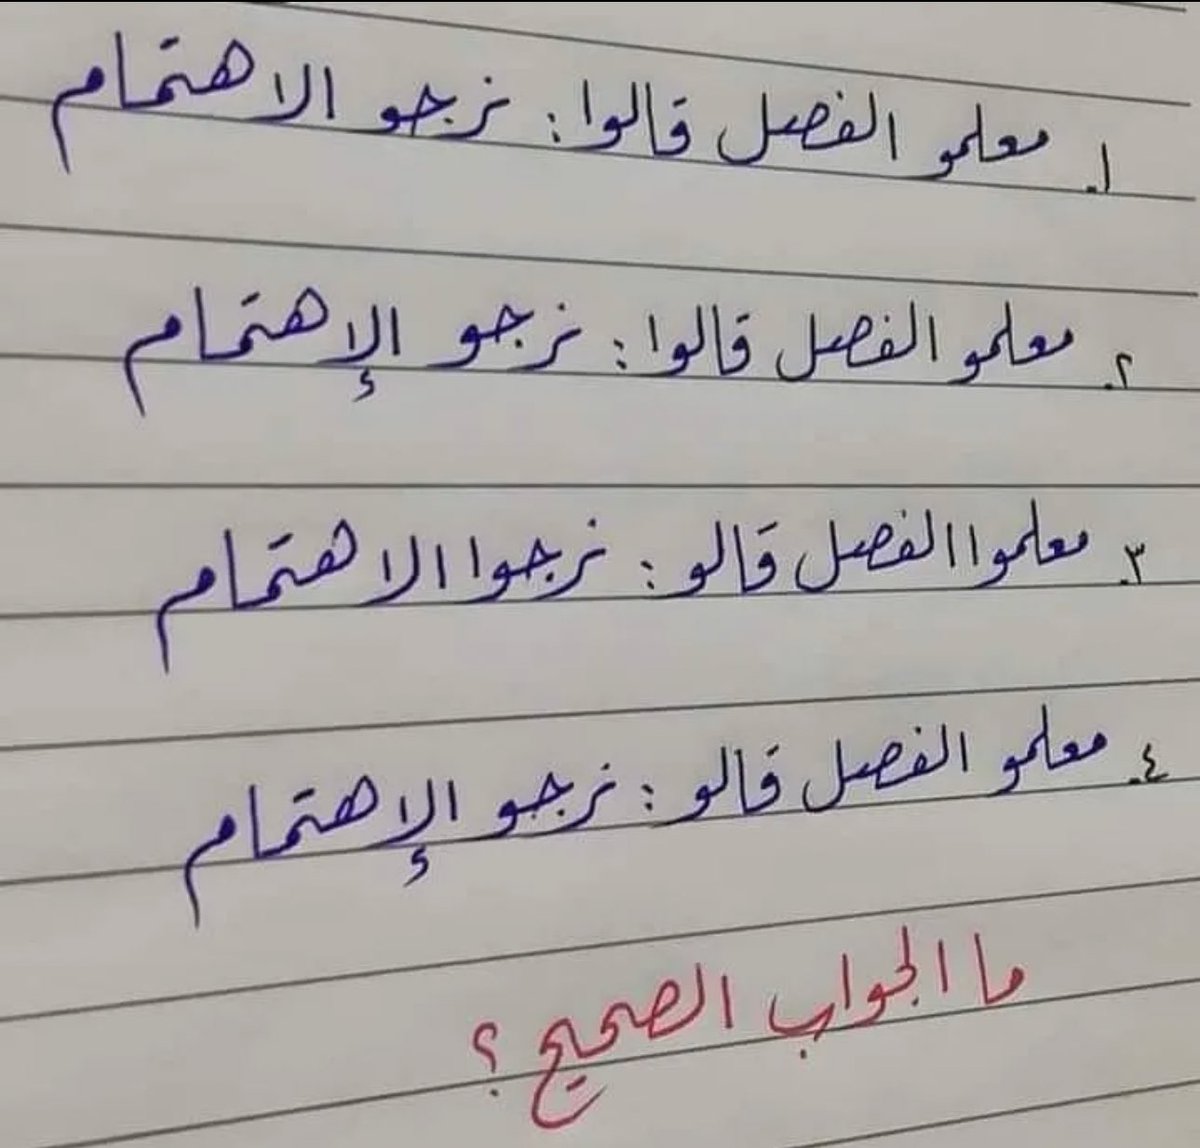 ١. معلمو الفصل قالوا: نرجو الاهتمام
٢. معلمو الفصل قالوا: نرجو الإهتمام
٣. معلموا الفصل قالو: نرجوا الاهتمام
٤. معلمو الفصل قالو: نرجو الإهتمام
ما الجواب الصحيح؟